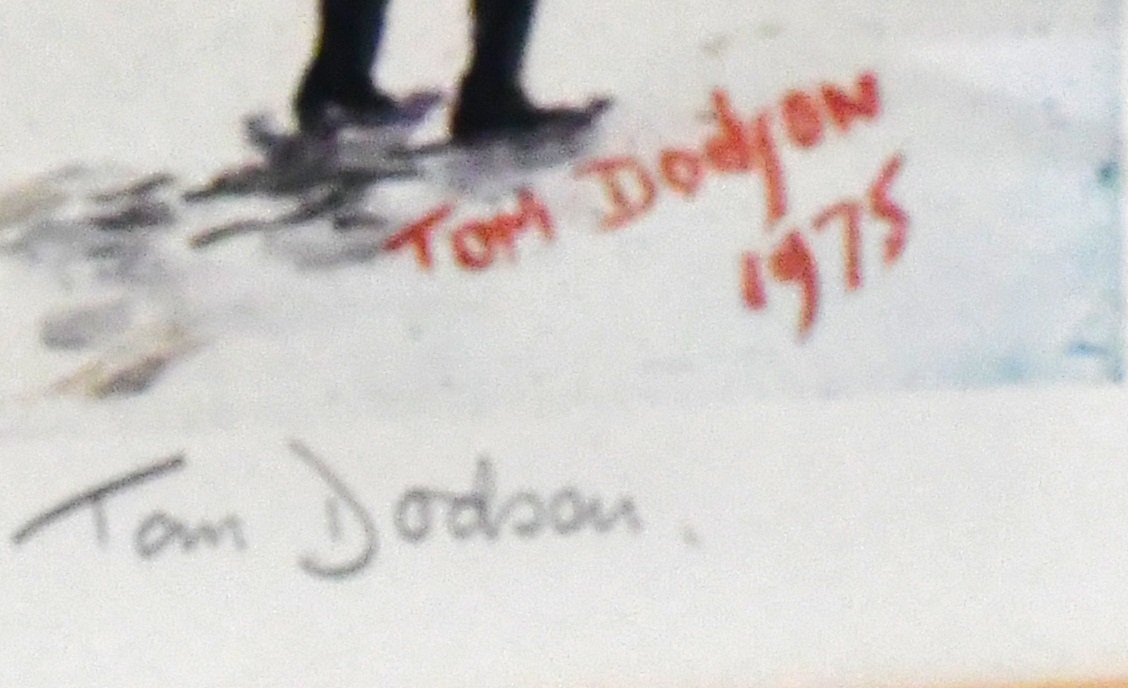 Tom Dodson
1975
Tom Dodson.